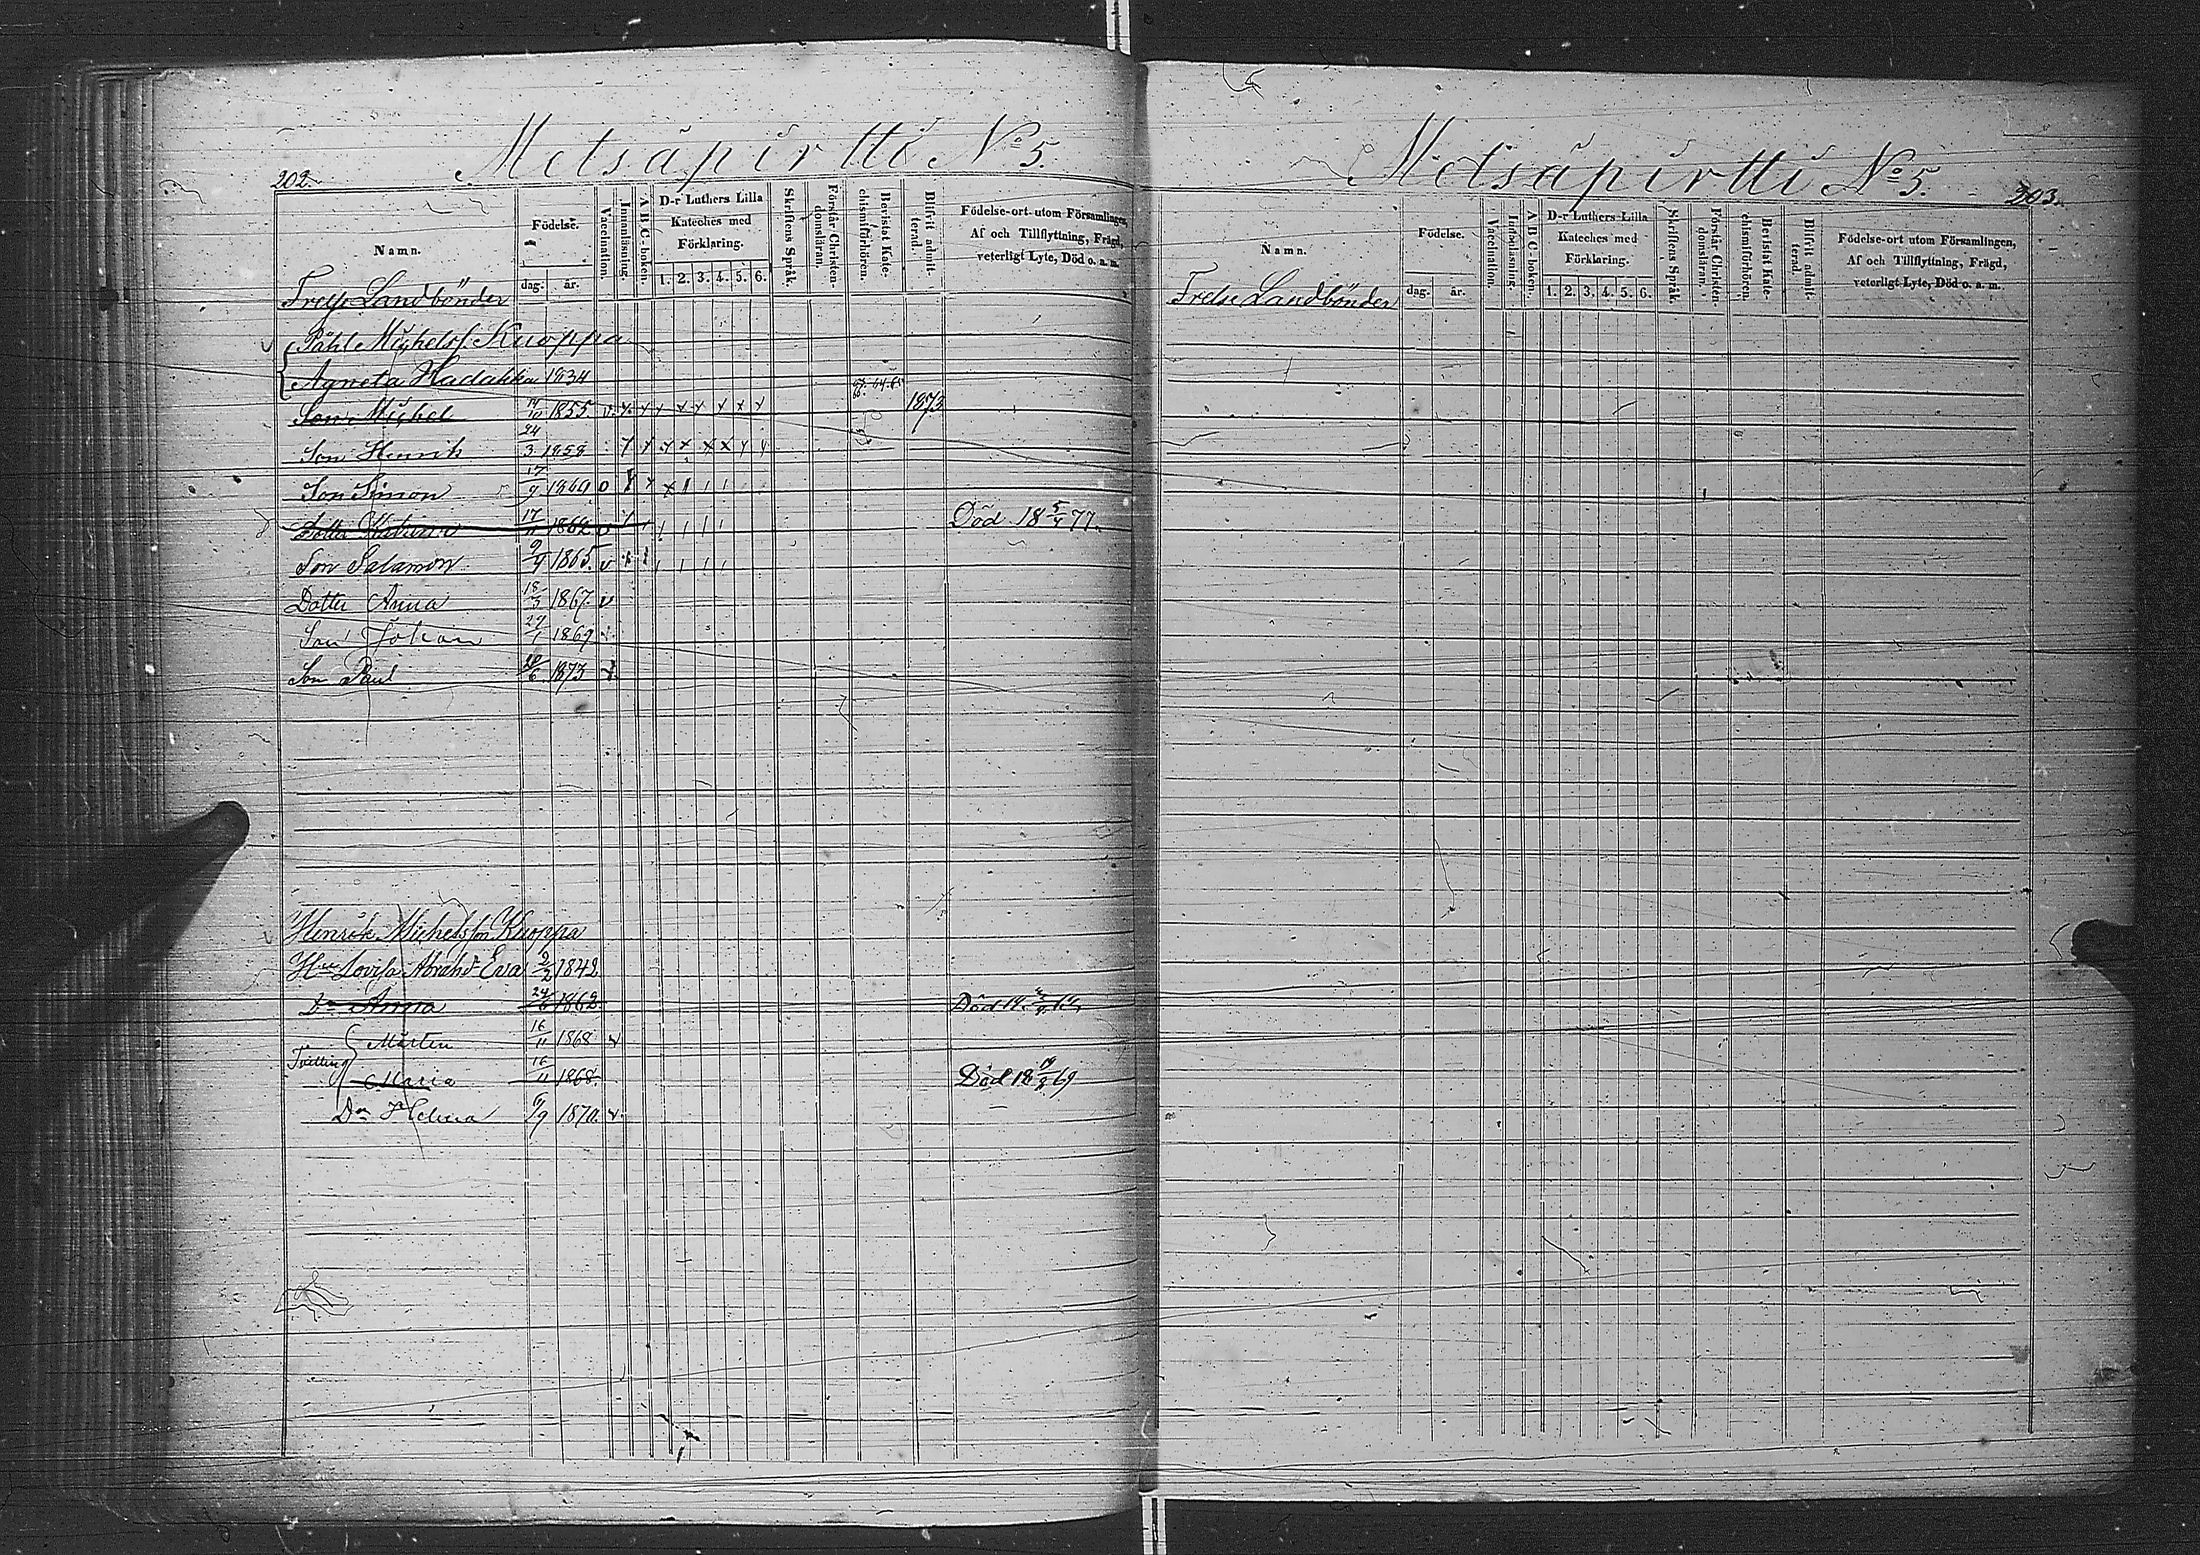 202.
Metsäpirtti No 5.
Namn.
Födelse.
dag. år.
Vaccination.
Innanläsning.
A B C-boken.
D-r Luthers Lilla
Kateches med
Förklaring.
1. 2. 3. 4. 5. 6.
Skriftens Språk.
Förstår Christen-
domsläran.
Bevistat Kate-
chismiförhören.
Blifvit admit-
terad.
Födelse-ort utom Församlingen,
Af och Tillflyttning, Frägd,
veterligt Lyte, Död o. a. m.
Frelse Landbönder
Påhl Michelss. Knoppa
Agneta Hadakka 1834
Son Michel 1855 v 1873
Son Henrik 24/3 1858
Son Simon 17/9 1860
Dotter 17/11 1862 Död 18 5/4 77.
Son Salamon 9/9 1865 v
Dotter Anna 18/3 1867 v
Son Johan 1869
Son Paul 1873
Henrik Michelsson Knoppa
Hu Lovisa Abrahd Eva 2/2 1842
Dr Anna 1862 Död
Mårten 16/11 1868 v
Tvilling
Maria 16/11 1868 Död 18 69
Dr Helena 1870 v
Metsäpirtti No 5.
203.
Namn.
Födelse.
dag. år.
Vaccination.
Innanläsning.
A B C-boken.
D-r Luthers Lilla
Kateches med
Förklaring.
1. 2. 3. 4. 5. 6.
Skriftens Språk.
Förstår Christen-
domsläran.
Bevistat Kate-
chismiförhören.
Blifvit admit-
terad.
Födelse-ort utom Församlingen,
Af och Tillflyttning, Frägd,
veterligt Lyte, Död o. a. m.
Frelse Landbönder